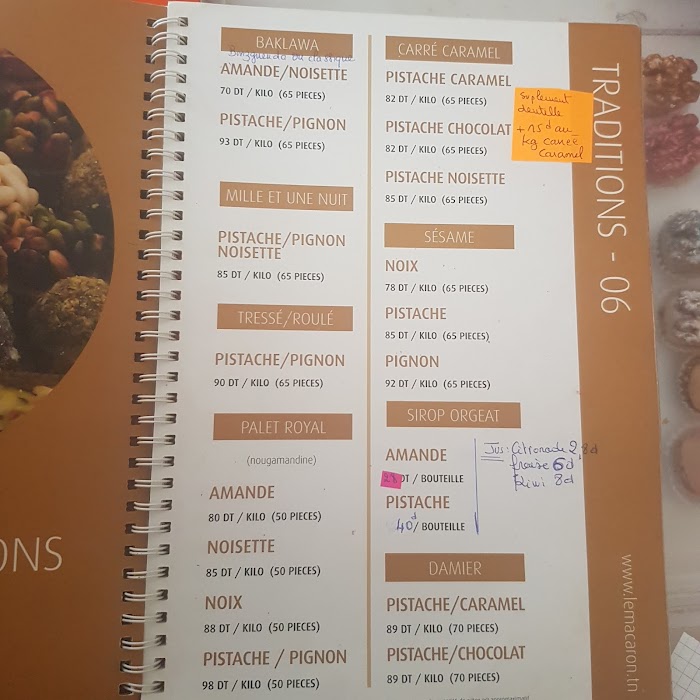 BAKLAWA
AMANDE/NOISETTE
70 DT / KILO (65 PIECES)
PISTACHE/PIGNON
93 DT / KILO (65 PIECES)
MILLE ET UNE NUIT
PISTACHE/PIGNON
NOISETTE
85 DT / KILO (65 PIECES)
TRESSÉ/ROULÉ
PISTACHE/PIGNON
90 DT / KILO (65 PIECES)
PALET ROYAL
(nougamandine)
AMANDE
80 DT / KILO (50 PIECES)
NOISETTE
85 DT / KILO (50 PIECES)
NOIX
88 DT / KILO (50 PIECES)
PISTACHE / PIGNON
98 DT / KILO (50 PIECES)
CARRÉ CARAMEL
PISTACHE CARAMEL
82 DT / KILO (65 PIECES)
PISTACHE CHOCOLAT
82 DT / KILO (65 PIECES)
PISTACHE NOISETTE
85 DT / KILO (65 PIECES)
Suplement
dentelle
+ 15d au
kg carré
Caramel
SÉSAME
NOIX
78 DT / KILO (65 PIECES)
PISTACHE
85 DT / KILO (65 PIECES)
PIGNON
92 DT / KILO (65 PIECES)
SIROP ORGEAT
AMANDE
28 DT / BOUTEILLE
PISTACHE
40d / BOUTEILLE
Jus: Citronade 2,8d
fraise 6d
Kiwi 8d
DAMIER
PISTACHE/CARAMEL
89 DT / KILO (70 PIECES)
PISTACHE/CHOCOLAT
89 DT / KILO (70 PIECES)
TRADITIONS - 06
www.lemacaron.tn
ONS